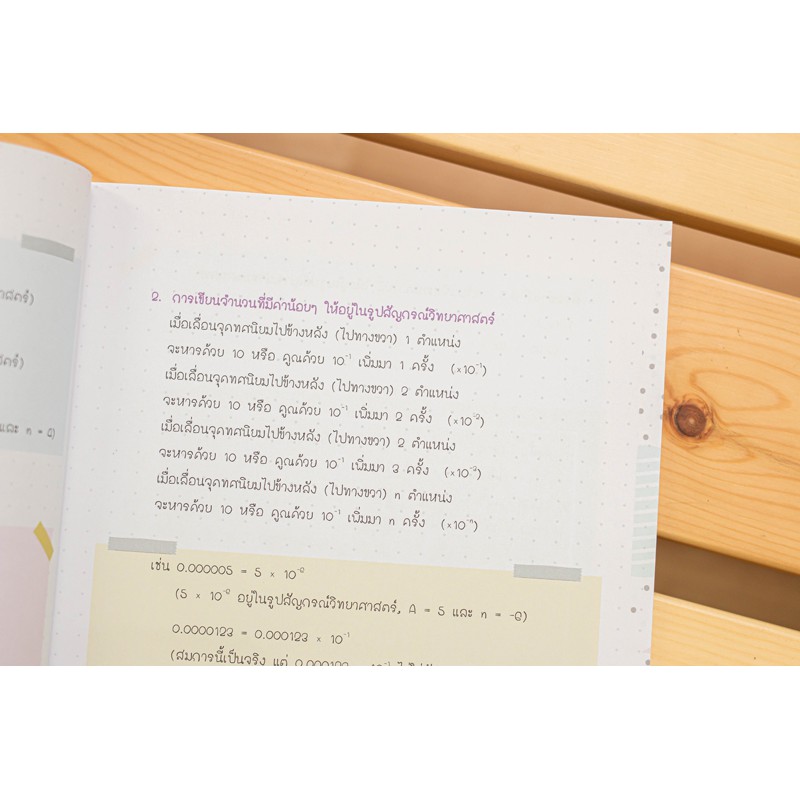 าสตร์)
สตร์)
และ n = 6)
2. การเขียนจำนวนที่มีค่าน้อยๆ ให้อยู่ในรูปสัญกรณ์วิทยาศาสตร์
เมื่อเลื่อนจุดทศนิยมไปข้างหลัง (ไปทางขวา) 1 ตำแหน่ง
จะหารด้วย 10 หรือ คูณด้วย 10⁻¹ เพิ่มมา 1 ครั้ง (×10⁻¹)
เมื่อเลื่อนจุดทศนิยมไปข้างหลัง (ไปทางขวา) 2 ตำแหน่ง
จะหารด้วย 10 หรือ คูณด้วย 10⁻¹ เพิ่มมา 2 ครั้ง (×10⁻²)
เมื่อเลื่อนจุดทศนิยมไปข้างหลัง (ไปทางขวา) 2 ตำแหน่ง
จะหารด้วย 10 หรือ คูณด้วย 10⁻¹ เพิ่มมา 3 ครั้ง (×10⁻³)
เมื่อเลื่อนจุดทศนิยมไปข้างหลัง (ไปทางขวา) n ตำแหน่ง
จะหารด้วย 10 หรือ คูณด้วย 10⁻¹ เพิ่มมา n ครั้ง (×10⁻ⁿ)
เช่น 0.000005 = 5 × 10⁻⁶
(5 × 10⁻⁶ อยู่ในรูปสัญกรณ์วิทยาศาสตร์, A = 5 และ n = -6)
0.0000123 = 0.000123 × 10⁻¹
(สมการนี้เป็นจริง แต่ 0.000123